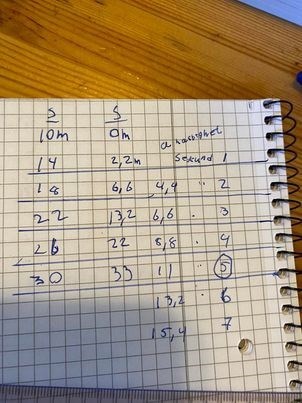 S S
10m 0m
14 2,2m sekund 1
18 6,6 4,4 " 2
22 13,2 6,6 . 3
26 22 8,8 . 4
30 33 11 " 5
13,2 . 6
15,4 7